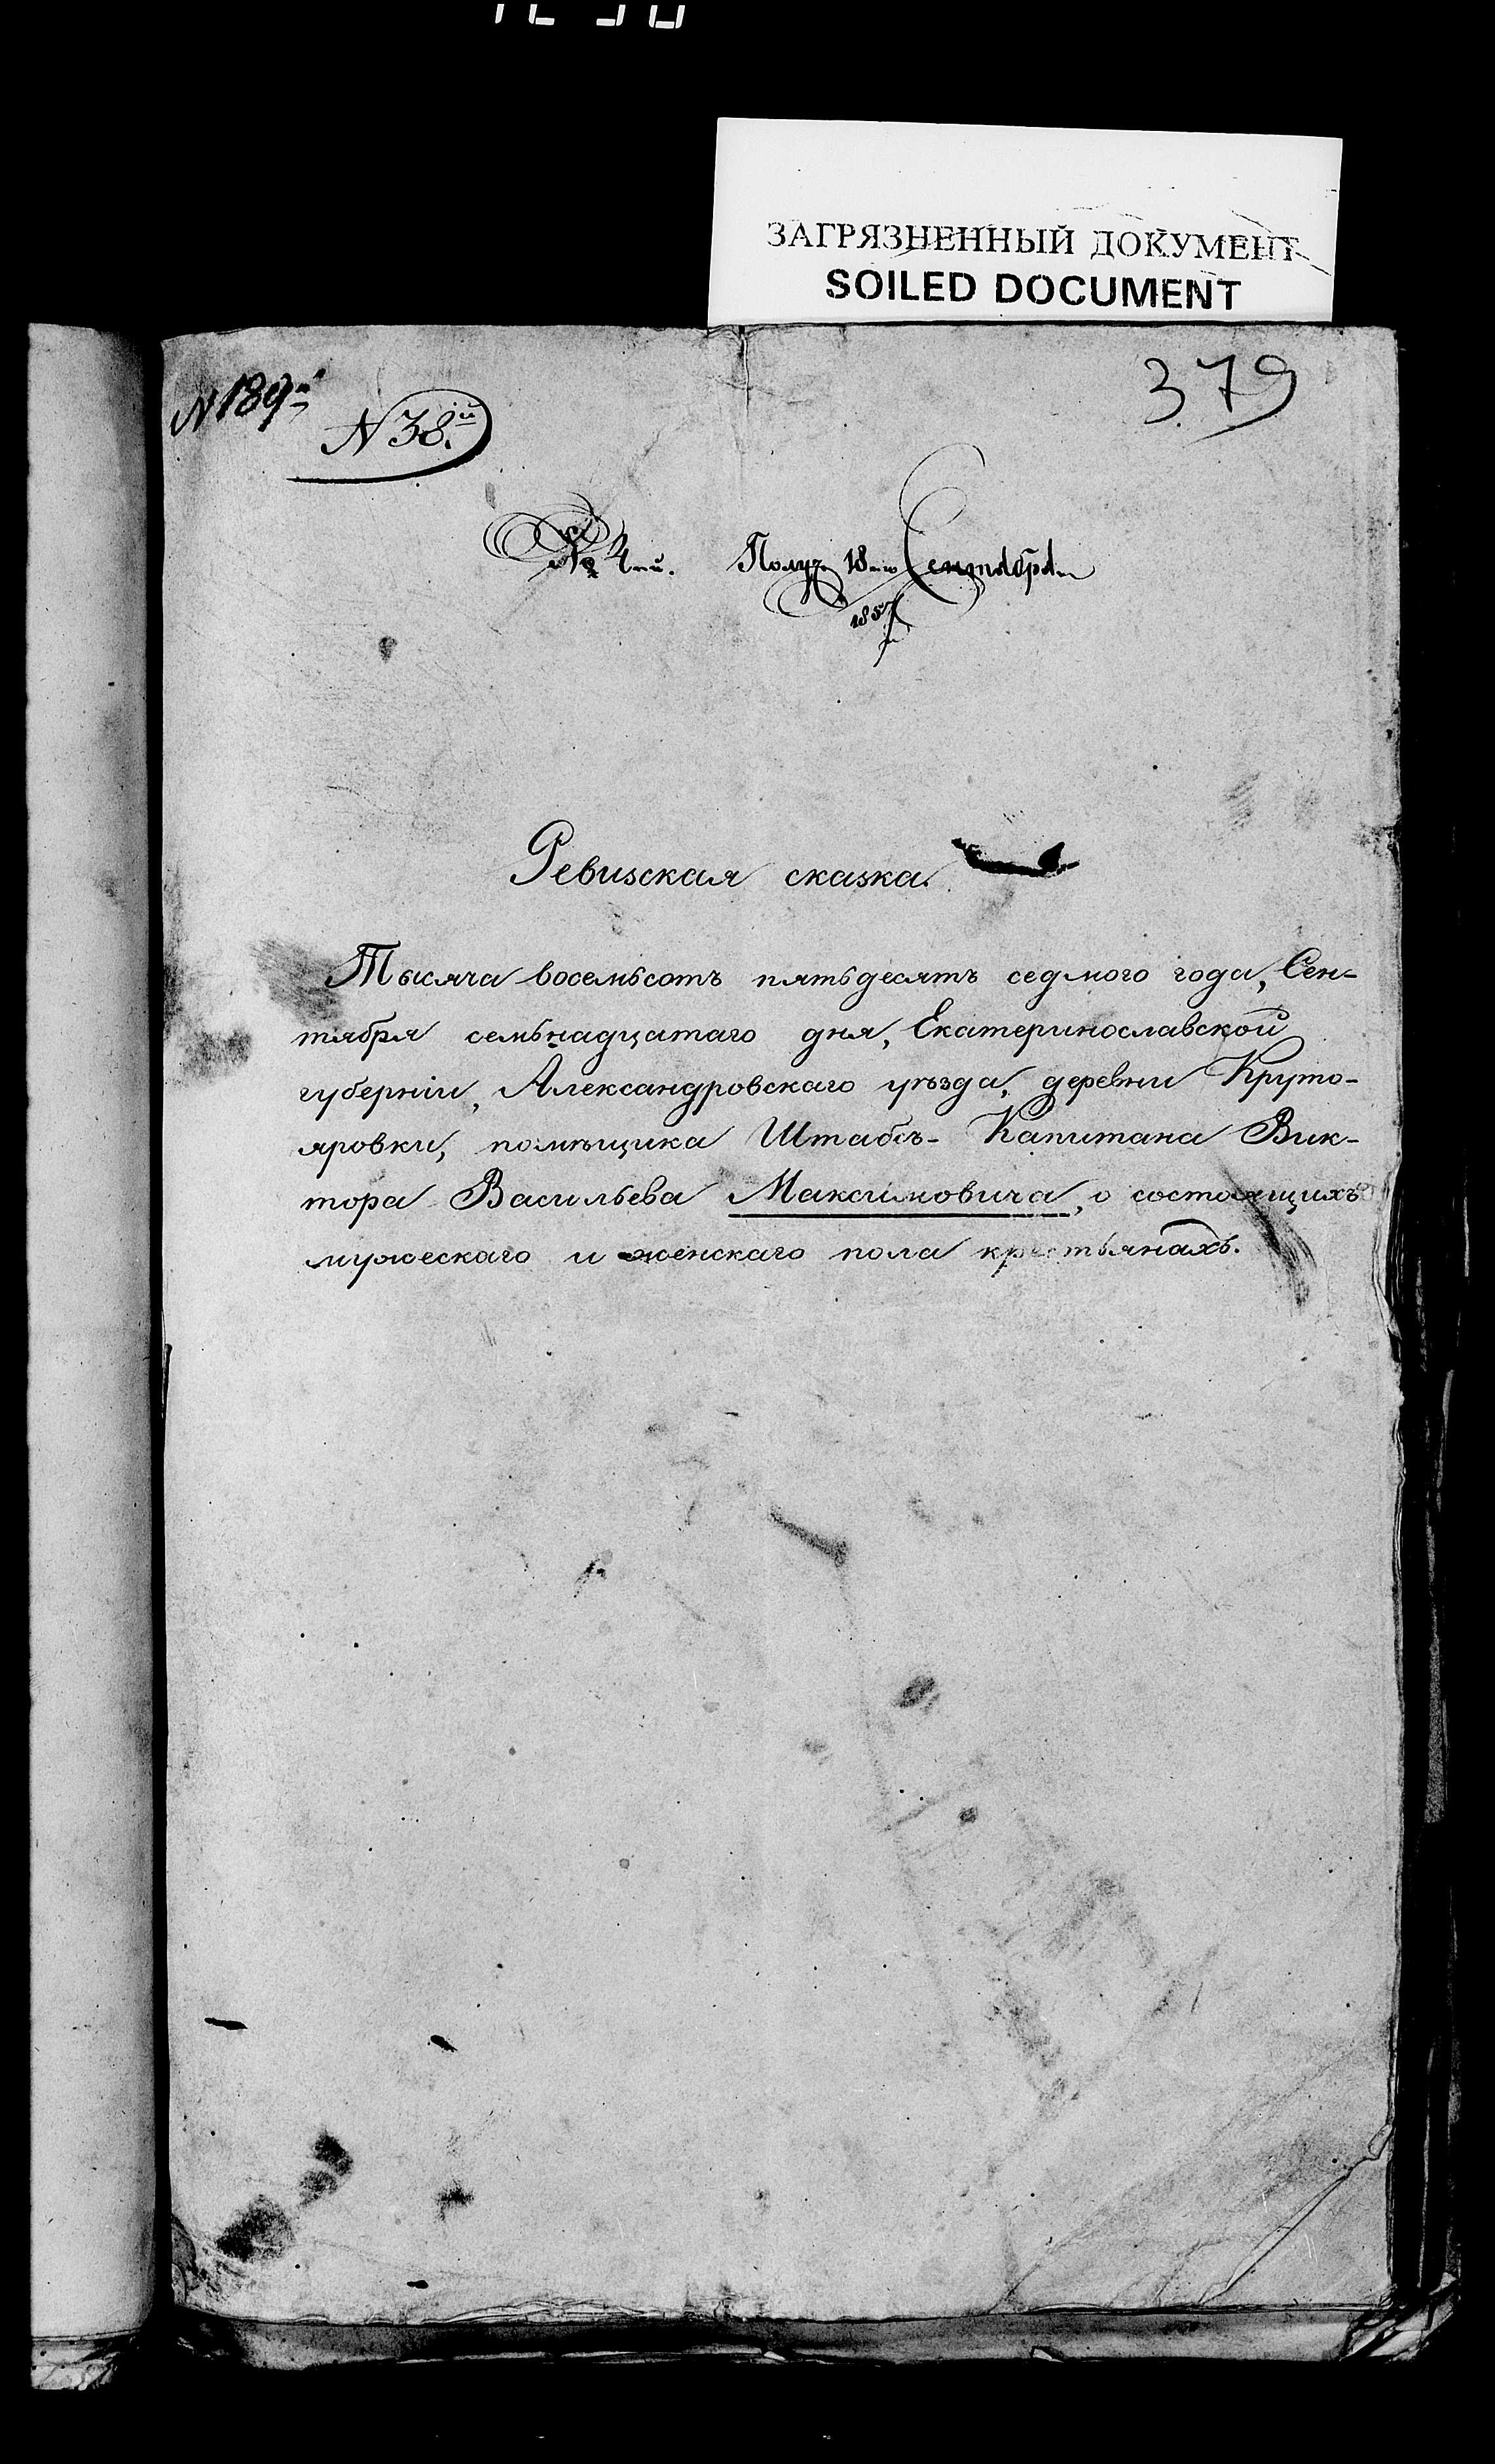 ЗАГРЯЗНЕННЫЙ ДОКУМЕНТ
SOILED DOCUMENT
379
N 189й
N 38.й
№ 4й. Получ. 18го Сентября
1857
Ревизская сказка.
Тысяча восемьсотъ пятьдесятъ седмого года, Сен-
тября семьнадцатаго дня, Екатеринославской
губерніи, Александровскаго уѣзда, деревни Круто-
яровки, помѣщика Штабсъ-Капитана Вик-
тора Васильева Максимовича, о состоящихъ
мужескаго и женскаго пола крестьянахъ.